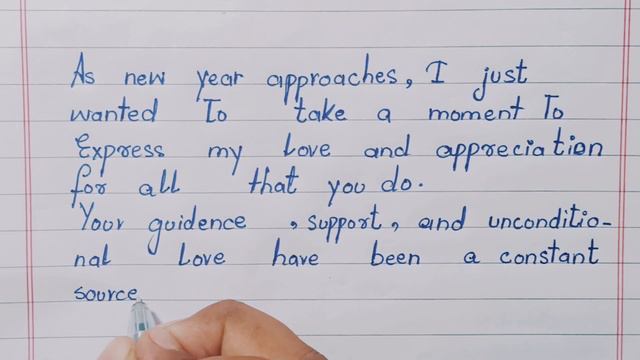 As new year approaches, I just
wanted To take a moment To
Express my Love and appreciation
for all that you do.
Your guidence , support, and unconditio-
nal Love have been a constant
source